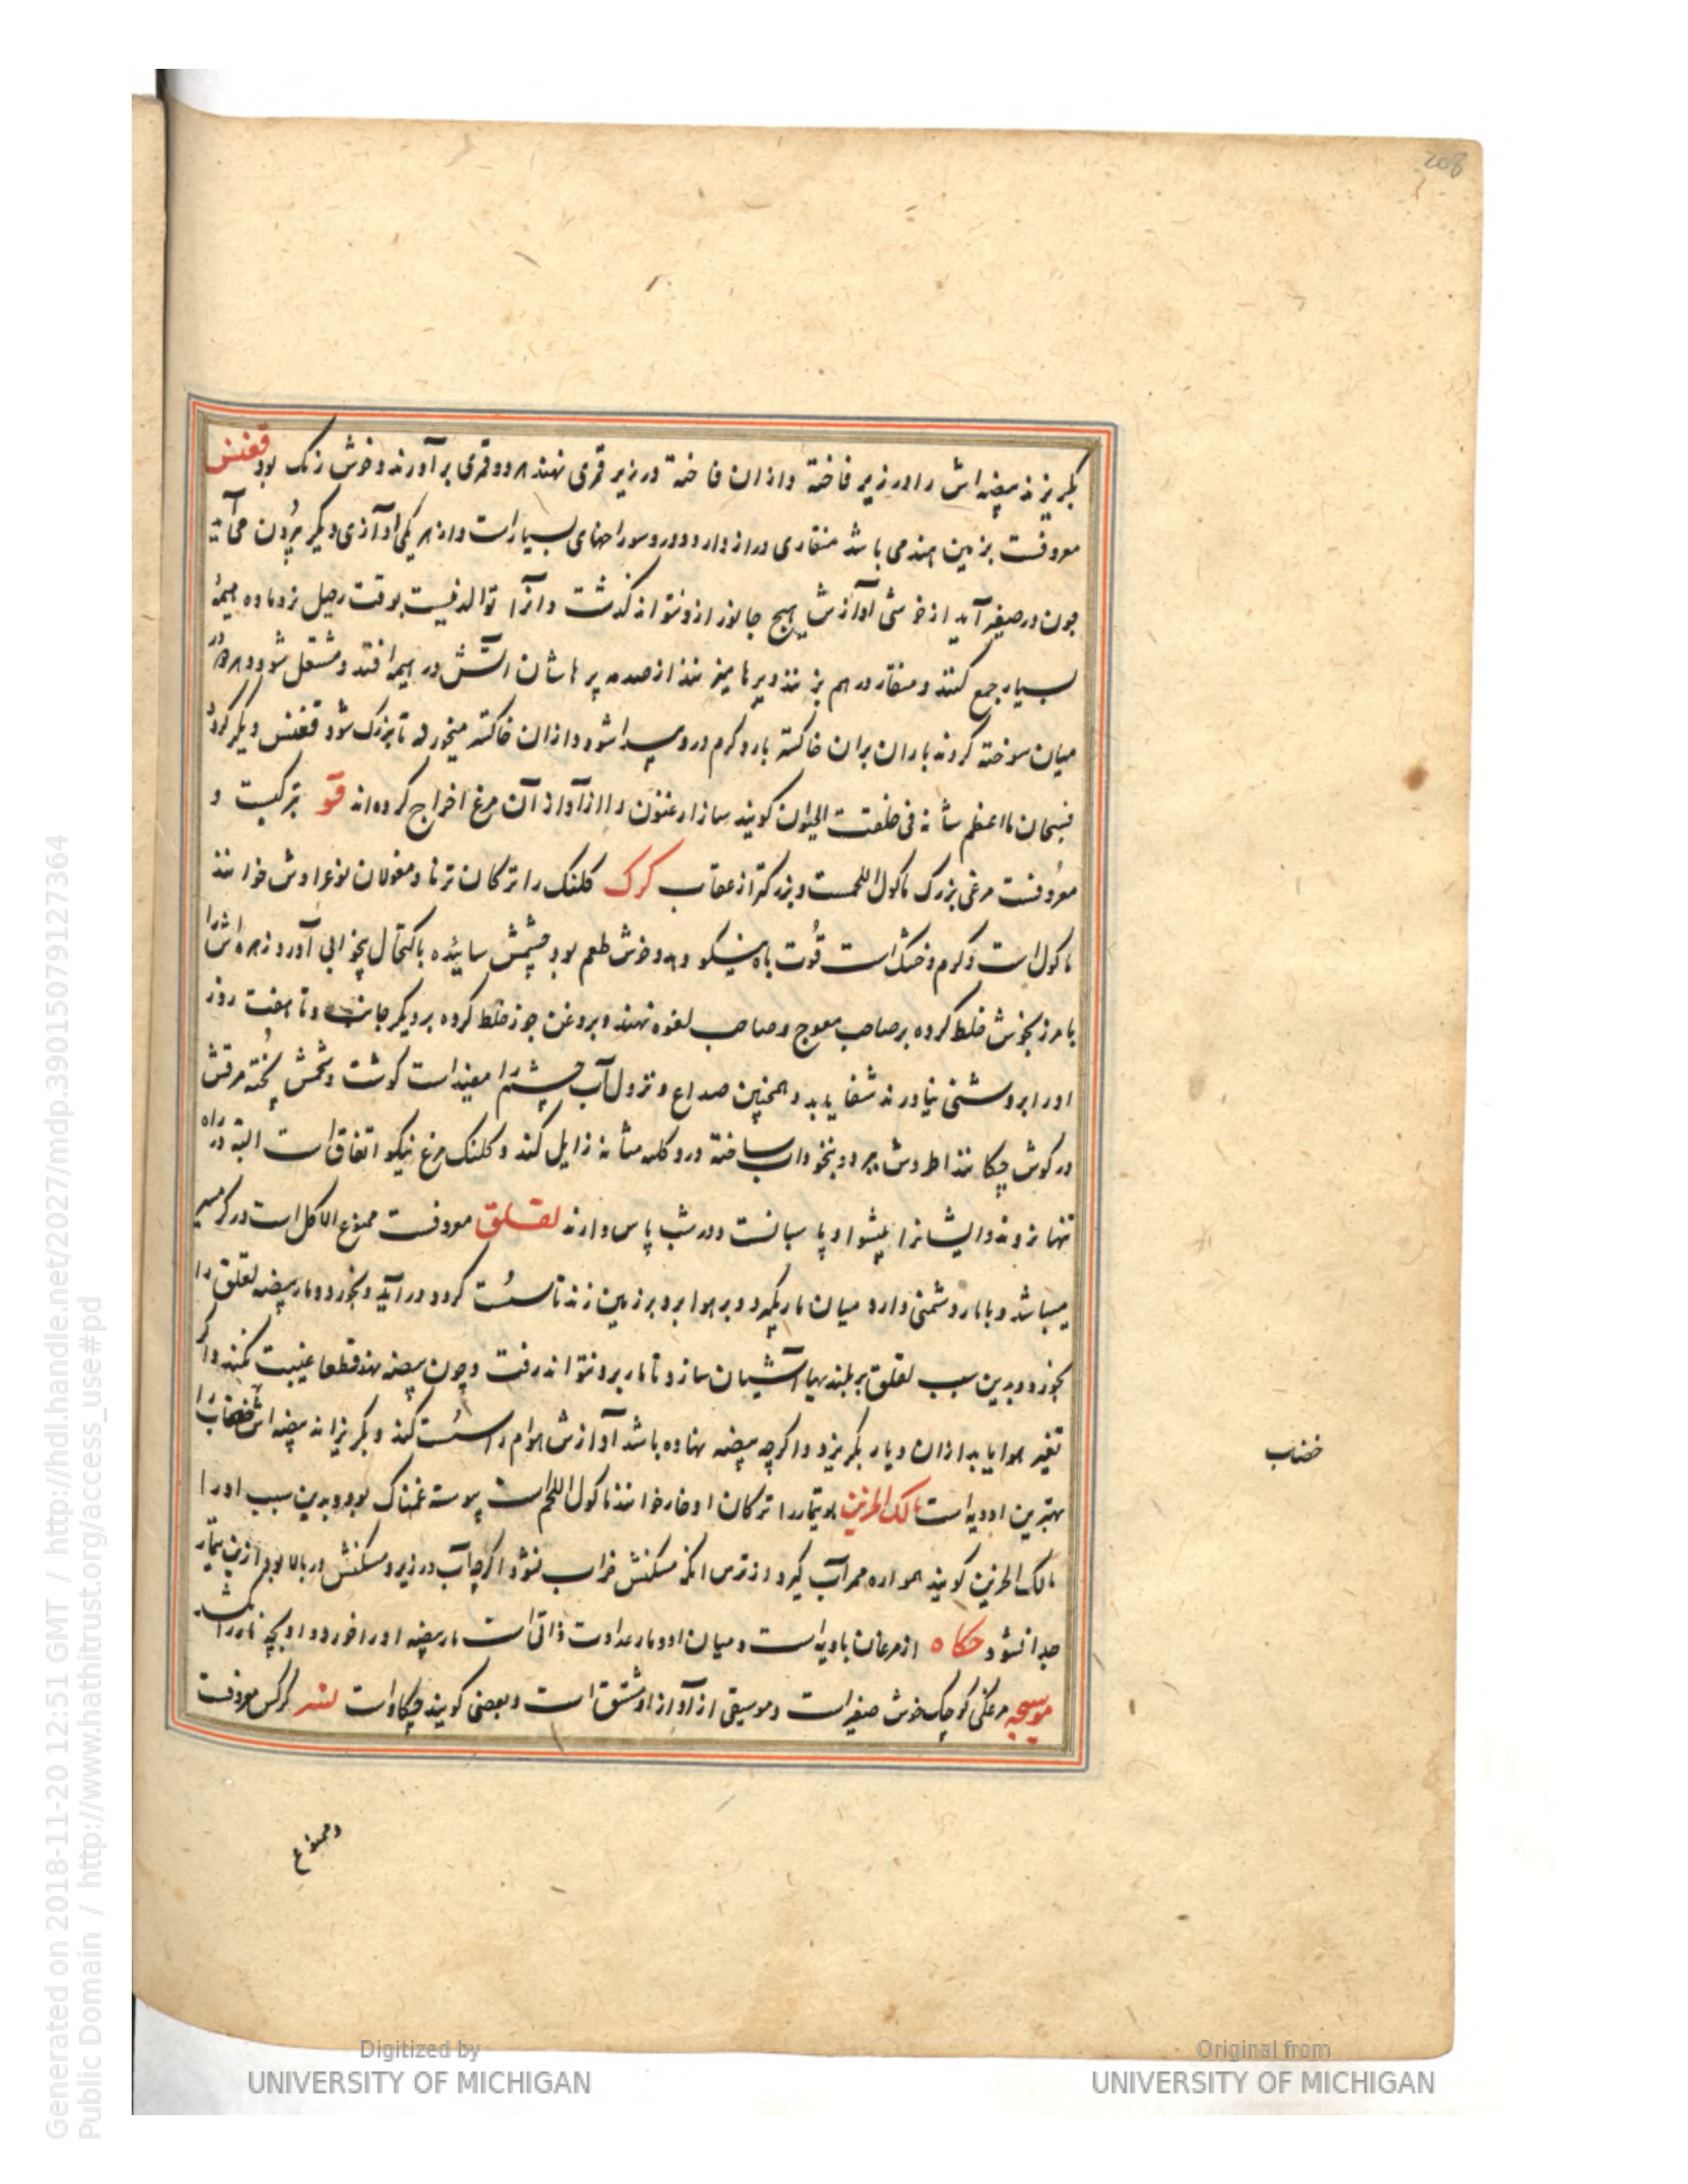 208
بگریزند بیضه‌اش را در زیر فاخته و از ان فاخته در زیر قمری نهند هر دو قمری برآورند و خوش رنک بود ققنس
معروفست بزمین هند می باشد منقاری دراز دارد و درو سوراخهای بسیار است و از هر یکی آوازی دیکر برون می آید
چون در صفیر آید از خوشی آوازش هیچ جانور ازو نتواند کذشت و انرا توالد نیست بوقت رحیل نر و ماده هیمهٔ
بسیار جمع کنند و منقار در هم زنند و پرها میزنند از صدمه پرهاشان آتش در هیمه افتد و مشتعل شود و هر دو در
میان سوخته کردند باران بران خاکستر بارد کرم درو پیدا شود و ازان خاکستر میخورد تا بزرک شود ققنس دیکر کردد
فسبحان ما اعظم شانه فی خلقت الحیوان کویند ساز ارغنون را از آواز آن مرغ اخراج کرده‌اند قو ترکیست و
معروفست مرغی بزرک ماکول اللحمست و بزرکتر از عقاب کرک کلنک را ترکان ترنا و مغولان توغراوش خوانند
ماکول است و کرم و خشک است قوت باه نیکو دهد و خوش طعم بود چشمش سائیده باکتحال بیخوابی آورد زهره‌اش را
با مرزنجوش خلط کرده بر صاحب معوج و صاحب لقوه نهند و بروغن جوز خلط کرده بر دیکر جانب و تا هفت روز
او را بروشنی نیاورند شفا یابد و همچنین صداع و نزول آب چشم را مفیداست کوشت و شحمش پخته مرقش
در کوش چکانند اطروش ببرد و بنخوداب ساخته درد کلیه مثانه زایل کند و کلنک مرغ نیکو اتفاق است البته در راه
تنها نروند و ایشانرا پیشوا و پاسبانست و در شب پاس دارند لقلق معروفست ممنوع الاکل است در کرمسیر
میباشد و با مار دشمنی دارد میان مار بکیرد و بر هوا برد و بر زمین زند تا سست کردد و درآید و بخورد و مار بیضه لقلق را
بخورد و بدین سبب لقلق بر بلندیها آشیان سازد تا مار برو نتواند رفت و چون بیضه نهد قطعا غیبت نکند و اکر
تغیر هوا یابد ازان دیار بکریزد و اکرچه بیضه نهاده باشد آوازش هوام را سست کند و بکریزاند بیضه‌اش خضاب را
بهترین ادویه است مالک الحزین بوتیمار را ترکان اوخار خوانند ماکول اللحم است پیوسته غمناک بود و بدین سبب او را
مالک الحزین کویند همواره ممر آب کیرد و از ترس انکه مسکنش خراب نشود اکرچه آب در زیر و مسکنش در بالا بود ازین تیمار
جدا نشود مکاه از مرغان بادیه است و میان او و مار عداوت ذاتی است مار بیضه او را خورد و او بچه مار را کشد
موسیجه مرغکی کوچک خوش صفیر است و موسیقی از آواز او مشتق است و بعضی کویند چکاو است نسر کرکس معروفست
خضاب
و ممنوع
Digitized by
UNIVERSITY OF MICHIGAN
Original from
UNIVERSITY OF MICHIGAN
Generated on 2018-11-20 12:51 GMT / http://hdl.handle.net/2027/mdp.39015079127364
Public Domain / http://www.hathitrust.org/access_use#pd